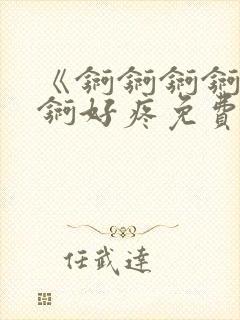 《锕锕锕锕
锕好疼免費
任武達